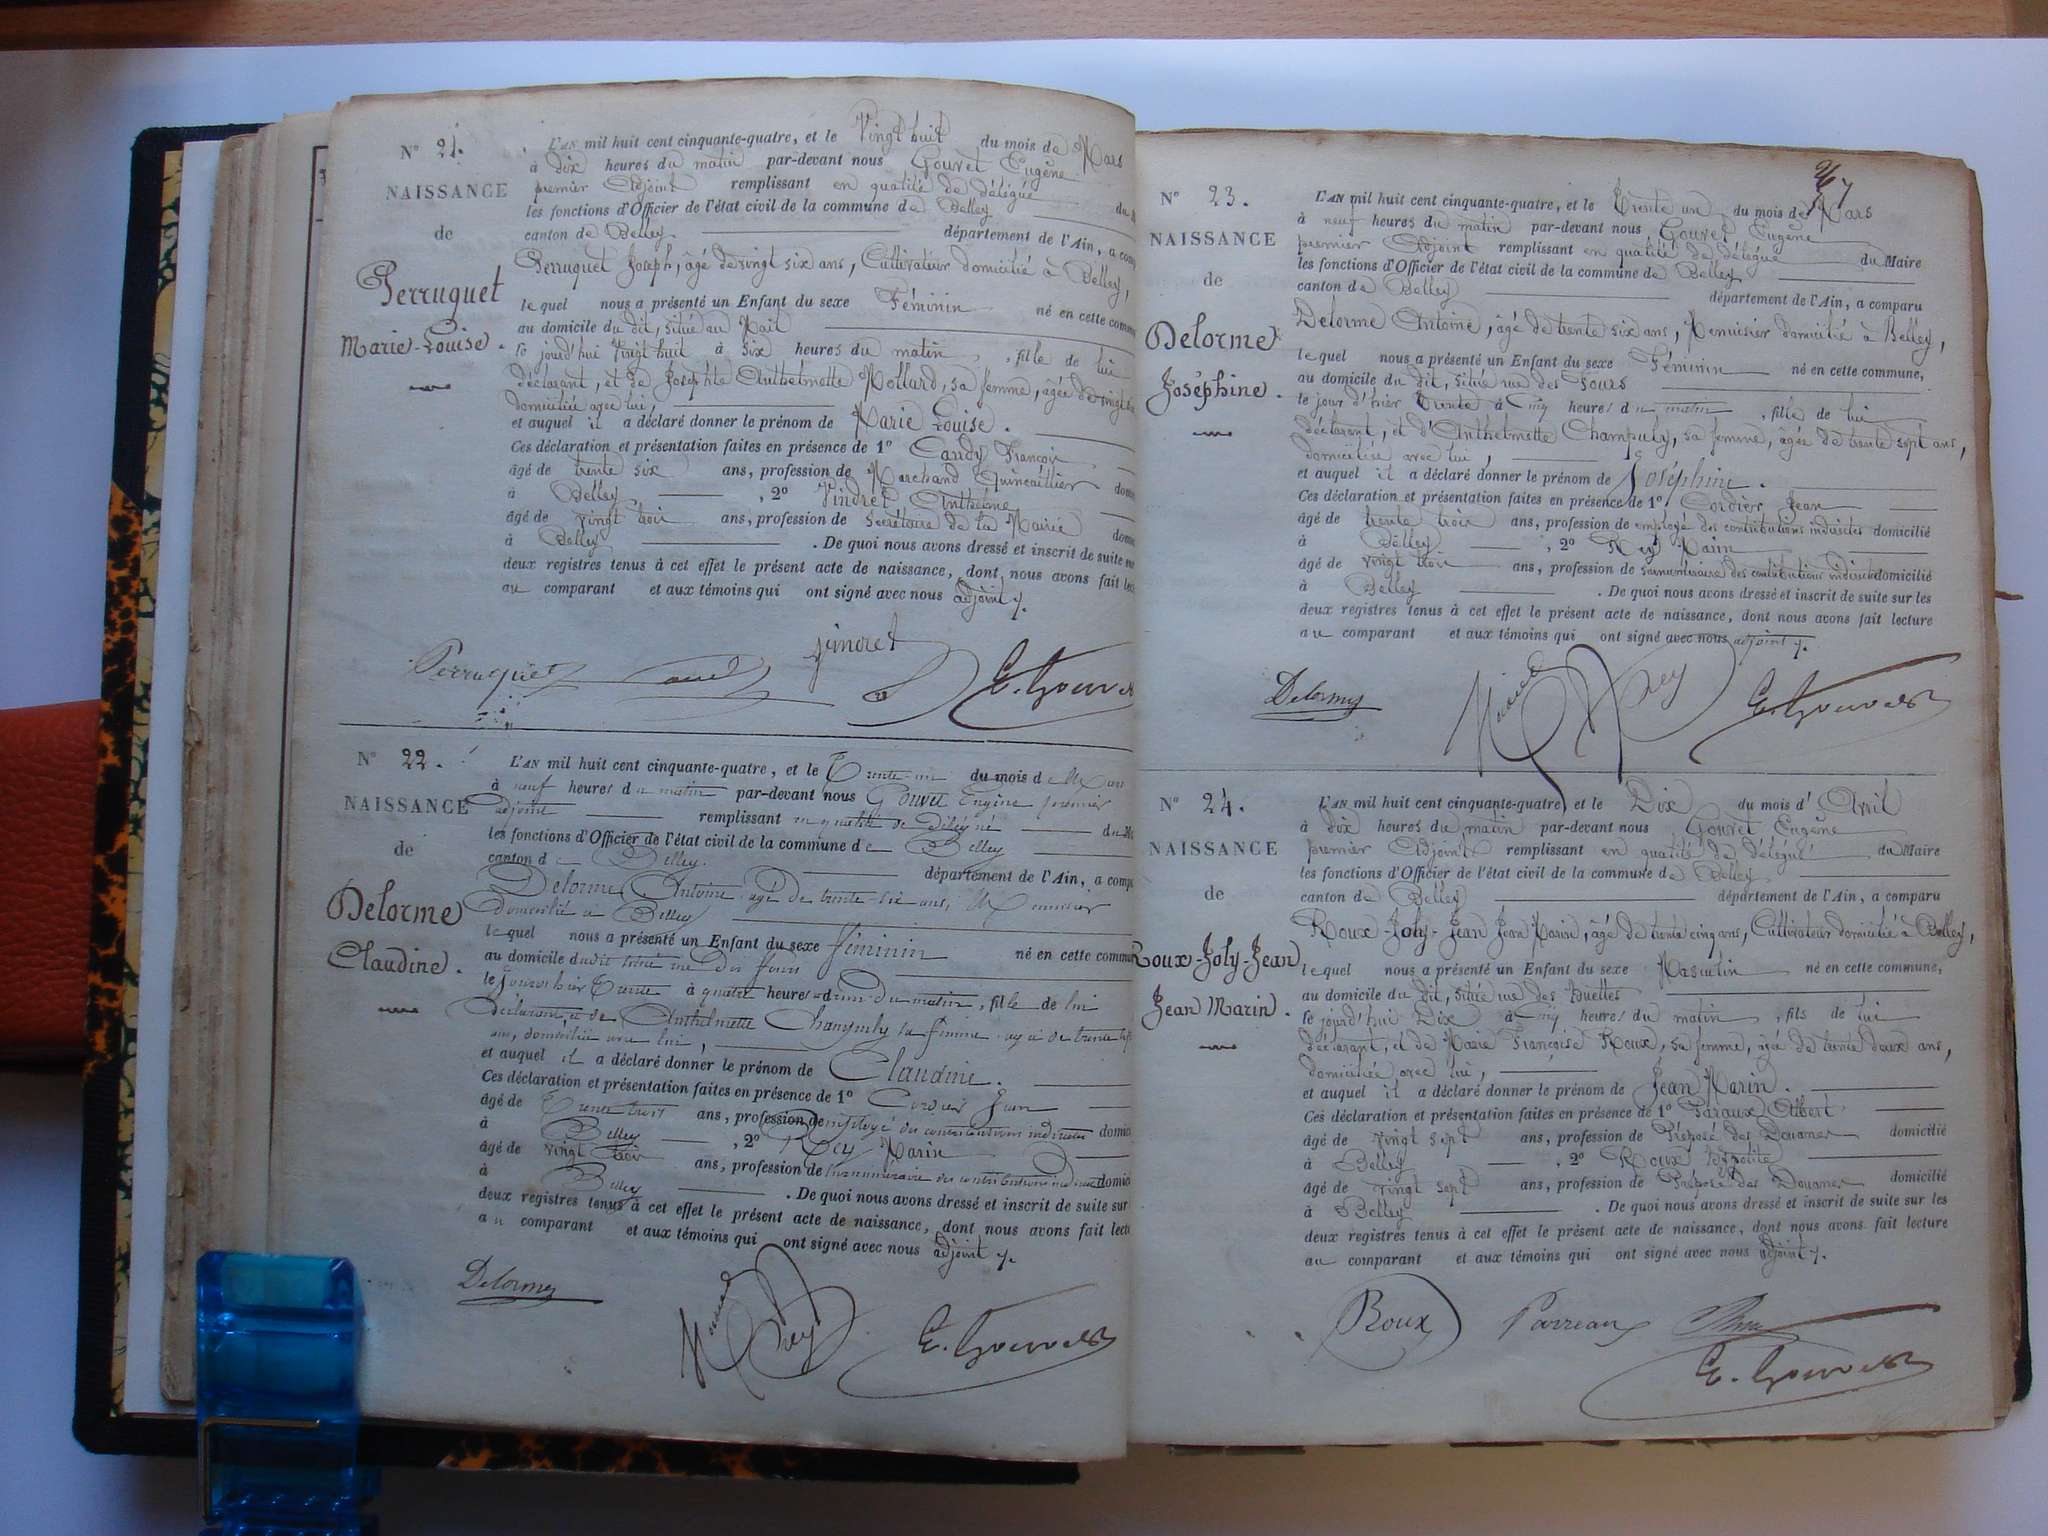 N° 21.
NAISSANCE
de
Perruquet
Marie-Louise.
L'AN mil huit cent cinquante-quatre, et le Vingt huit du mois de Mars
à dix heures du matin par-devant nous Gouvet Eugène
premier Adjoint remplissant en qualité de délégué
les fonctions d'Officier de l'état civil de la commune de Belley
canton de Belley département de l'Ain, a
Perruquet Joseph, âgé de vingt six ans, Cultivateur domicilié à Belley,
lequel nous a présenté un Enfant du sexe Féminin né en cette
au domicile du dit, situé au Mail
le jourd'hui Vingt huit à six heures du matin, fille de lui
déclarant, et de Josephte Anthelmette Mollard, sa femme, âgée de vingt
domiciliée avec lui,
et auquel il a déclaré donner le prénom de Marie Louise.
Ces déclaration et présentation faites en présence de 1° Candy François
âgé de trente six ans, profession de Marchand Quincaillier
à Belley, 2° Vindret Anthelme
âgé de vingt trois ans, profession de Secrétaire de la Mairie
à Belley. De quoi nous avons dressé et inscrit de suite
deux registres tenus à cet effet le présent acte de naissance, dont nous avons fait
au comparant et aux témoins qui ont signé avec nous adjoint
Perruquet Vindret E. Gouvet
N° 22.
NAISSANCE
de
Delorme
Claudine.
L'AN mil huit cent cinquante-quatre, et le Trente-un du mois de Mars
à neuf heures du matin par-devant nous Gouvet Eugène premier
adjoint remplissant en qualité de délégué du
les fonctions d'Officier de l'état civil de la commune de Belley
canton de Belley. département de l'Ain, a
Delorme Antoine âgé de trente-six ans, Menuisier
domicilié à Belley
lequel nous a présenté un Enfant du sexe féminin né en cette
au domicile dudit situé rue des fours
le jour d'hier Trente à quatre heures du matin, fille de lui
déclarant, et de Anthelmette Champuly sa femme âgée de trente
ans, domiciliée avec lui,
et auquel il a déclaré donner le prénom de Claudine.
Ces déclaration et présentation faites en présence de 1° Cordier Jean
âgé de Trente trois ans, profession de employé des contributions indirectes
à Belley, 2° Rey Marin
âgé de vingt trois ans, profession de surnuméraire des contributions indirectes
à Belley. De quoi nous avons dressé et inscrit de suite sur
deux registres tenus à cet effet le présent acte de naissance, dont nous avons fait
au comparant et aux témoins qui ont signé avec nous adjoint
Delorme Rey E. Gouvet
N° 23.
NAISSANCE
de
Delorme
Joséphine.
L'AN mil huit cent cinquante-quatre, et le Trente un du mois de Mars
à neuf heures du matin par-devant nous Gouvet Eugène
premier Adjoint remplissant en qualité de délégué du Maire
les fonctions d'Officier de l'état civil de la commune de Belley
canton de Belley département de l'Ain, a comparu
Delorme Antoine, âgé de trente six ans, Menuisier domicilié à Belley,
lequel nous a présenté un Enfant du sexe Féminin né en cette commune,
au domicile du dit, situé rue des Fours
le jour d'hier trente à cinq heures du matin, fille de lui
déclarant, et d'Anthelmette Champuly, sa femme, âgée de trente sept ans,
domiciliée avec lui,
et auquel il a déclaré donner le prénom de Joséphine.
Ces déclaration et présentation faites en présence de 1° Cordier Jean
âgé de trente trois ans, profession de employé des contributions indirectes domicilié
à Belley, 2° Rey Marin
âgé de vingt trois ans, profession de surnuméraire des contributions indirectes domicilié
à Belley. De quoi nous avons dressé et inscrit de suite sur les
deux registres tenus à cet effet le présent acte de naissance, dont nous avons fait lecture
au comparant et aux témoins qui ont signé avec nous adjoint
Delorme Rey E. Gouvet
N° 24.
NAISSANCE
de
Roux-Joly-Jean
Jean Marin.
L'AN mil huit cent cinquante-quatre, et le Dix du mois d'Avril
à dix heures du matin par-devant nous Gouvet Eugène
premier Adjoint remplissant en qualité de délégué du Maire
les fonctions d'Officier de l'état civil de la commune de Belley
canton de Belley département de l'Ain, a comparu
Roux-Joly-Jean Jean Marin, âgé de trente cinq ans, Cultivateur domicilié à Belley,
lequel nous a présenté un Enfant du sexe Masculin né en cette commune,
au domicile du dit, situé rue des
le jourd'hui Dix à cinq heures du matin, fils de lui
déclarant, et de Marie Françoise Roux, sa femme, âgée de trente deux ans,
domiciliée avec lui,
et auquel il a déclaré donner le prénom de Jean Marin.
Ces déclaration et présentation faites en présence de 1° Albert
âgé de vingt sept ans, profession de Préposé des Douanes domicilié
à Belley, 2° Roux Hypolite
âgé de vingt sept ans, profession de Préposé des Douanes domicilié
à Belley. De quoi nous avons dressé et inscrit de suite sur les
deux registres tenus à cet effet le présent acte de naissance, dont nous avons fait lecture
au comparant et aux témoins qui ont signé avec nous adjoint
Roux
E. Gouvet